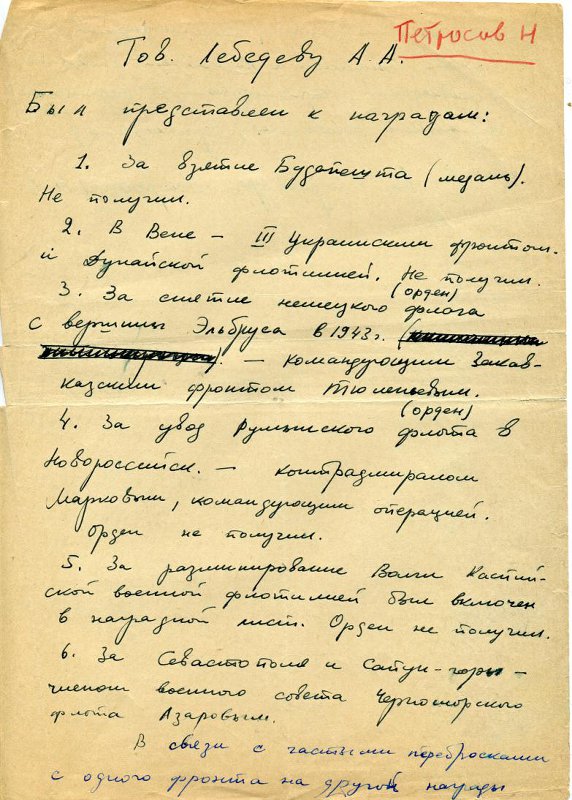 Петросов Н
Тов. Лебедеву А. А.
Был представлен к наградам:
1. За взятие Будапешта (медаль).
Не получил.
2. В Вене – III Украинским фронтом
и Дунайской флотилией. Не получил.
(орден)
3. За снятие немецкого флага
с вершины Эльбруса в 1943 г.
– командующим Закав-
казским фронтом Тюленевым.
(орден)
4. За увод Румынского флота в
Новороссийск. – контрадмиралом
Марковым, командующим операцией.
Орден не получил.
5. За разминирование Волги Каспий-
ской военной флотилией был включен
в наградной лист. Орден не получил.
6. За Севастополь и Сапун-горы –
членом военного совета Черноморского
флота Азаровым.
В связи с частыми перебросками
с одного фронта на другой награды